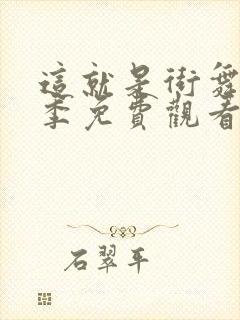 這就是街舞
季免費觀看
石翠平